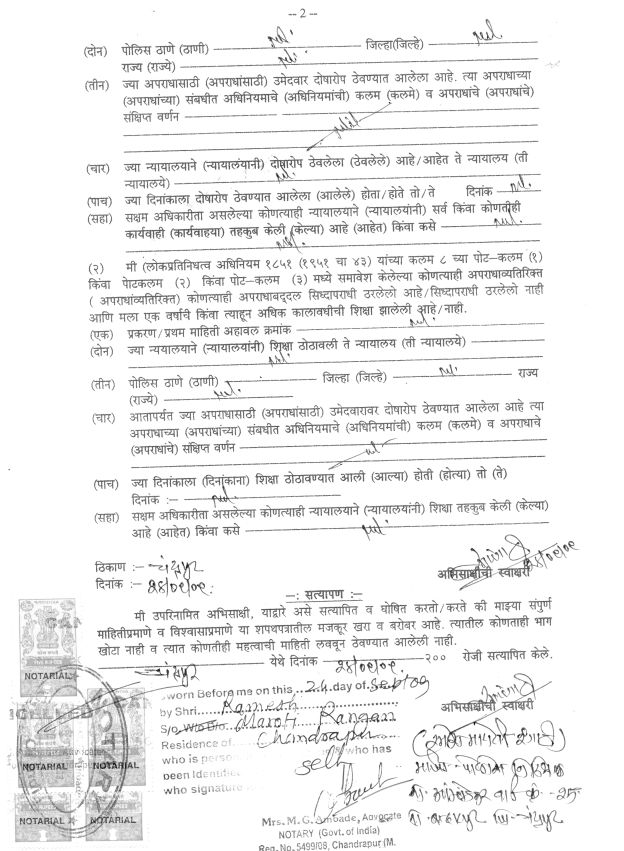 -- 2 --
(दोन) पोलिस ठाणे (ठाणी) nil. जिल्हा(जिल्हे) nil
राज्य (राज्ये) nil.
(तीन) ज्या अपराधासाठी (अपराधांसाठी) उमेदवार दोषारोप ठेवण्यात आलेला आहे. त्या अपराधाच्या
(अपराधांच्या) संबधीत अधिनियमाचे (अधिनियमांची) कलम (कलमे) व अपराधाचे (अपराधांचे)
संक्षिप्त वर्णन
nil
(चार) ज्या न्यायालयाने (न्यायालयंानी) दोषारोप ठेवलेला (ठेवलेले) आहे/आहेत ते न्यायालय (ती
न्यायालये) nil.
(पाच) ज्या दिनांकाला दोषारोप ठेवण्यात आलेला (आलेले) होता/होते तो/ते दिनांक nil.
(सहा) सक्षम अधिकारीता असलेल्या कोणत्याही न्यायालयाने (न्यायालयांनी) सर्व किंवा कोणतीही
कार्यवाही (कार्यवाहया) तहकुब केली (केल्या) आहे (आहेत) किंवा कसे
nil.
(२) मी (लोकप्रतिनिधत्व अधिनियम १८५१ (१९५१ चा ४३) यांच्या कलम ८ च्या पोट-कलम (१)
किंवा पेाटकलम (२) किंवा पोट-कलम (३) मध्ये समावेश केलेल्या कोणत्याही अपराधाव्यतिरिक्त
( अपराधांव्यतिरिक्त) कोणत्याही अपराधाबद्दल सिध्दापराधी ठरलेलो आहे/सिध्दापराधी ठरलेलो नाही
आणि मला एक वर्षाचे किंवा त्याहून अधिक कालावधीची शिक्षा झालेली आहे/नाही.
(एक) प्रकरण/प्रथम माहिती अहावल क्रमांक nil.
(दोन) ज्या न्ययालयाने (न्यायालयांनी) शिक्षा ठोठावली ते न्यायालय (ती न्यायालये)
nil.
(तीन) पोलिस ठाणे (ठाणी) जिल्हा (जिल्हे) nil. राज्य
(राज्ये) nil.
(चार) आतापर्यत ज्या अपराधासाठी (अपराधांसाठी) उमेदवारावर दोषारोप ठेवण्यात आलेला आहे त्या
अपराधाच्या (अपराधांच्या) संबधीत अधिनियमाचे (अधिनियमांची) कलम (कलमे) व अपराधाचे
(अपराधांचे) संक्षिप्त वर्णन
nil
(पाच) ज्या दिनांकाला (दिनांकाना) शिक्षा ठोठावण्यात आली (आल्या) होती (होत्या) तो (ते)
दिनांक :– nil.
(सहा) सक्षम अधिकारीता असलेल्या कोणत्याही न्यायालयाने (न्यायालयांनी) शिक्षा तहकुब केली (केल्या)
आहे (आहेत) किंवा कसे nil.
ठिकाण :– चंद्रपुर
दिनांक :– २४/०९/०९. अभिसाक्षीची स्वाक्षरी २४/०९/०९
–: सत्यापण :–
मी उपरिनामित अभिसाक्षी, याद्वारे असे सत्यापित व घोषित करतो/करते की माझ्या संपुर्ण
माहितीप्रमाणे व विश्वासाप्रमाणे या शपथपत्रातील मजकूर खरा व बरोबर आहे. त्यातील कोणताही भाग
खोटा नाही व त्यात कोणतीही महत्वाची माहिती लववून ठेवण्यात आलेली नाही.
चंद्रपुर येथे दिनांक २४/०९/०९. २०० रोजी सत्यापित केले.
worn Before me on this 24 day of Sep/09
by Shri Ramesh
अभिसाक्षीची स्वाक्षरी
S/o W/o D/o. Maroti
Residence of Chandrapur
who is person who has
been Identified self
who signature
NOTARIAL
NOTARIAL
NOTARIAL
NOTARIAL
NOTARIAL
Mrs. M. G. Ambade, Advocate
NOTARY (Govt. of India)
Reg. No. 5499/08, Chandrapur (M.